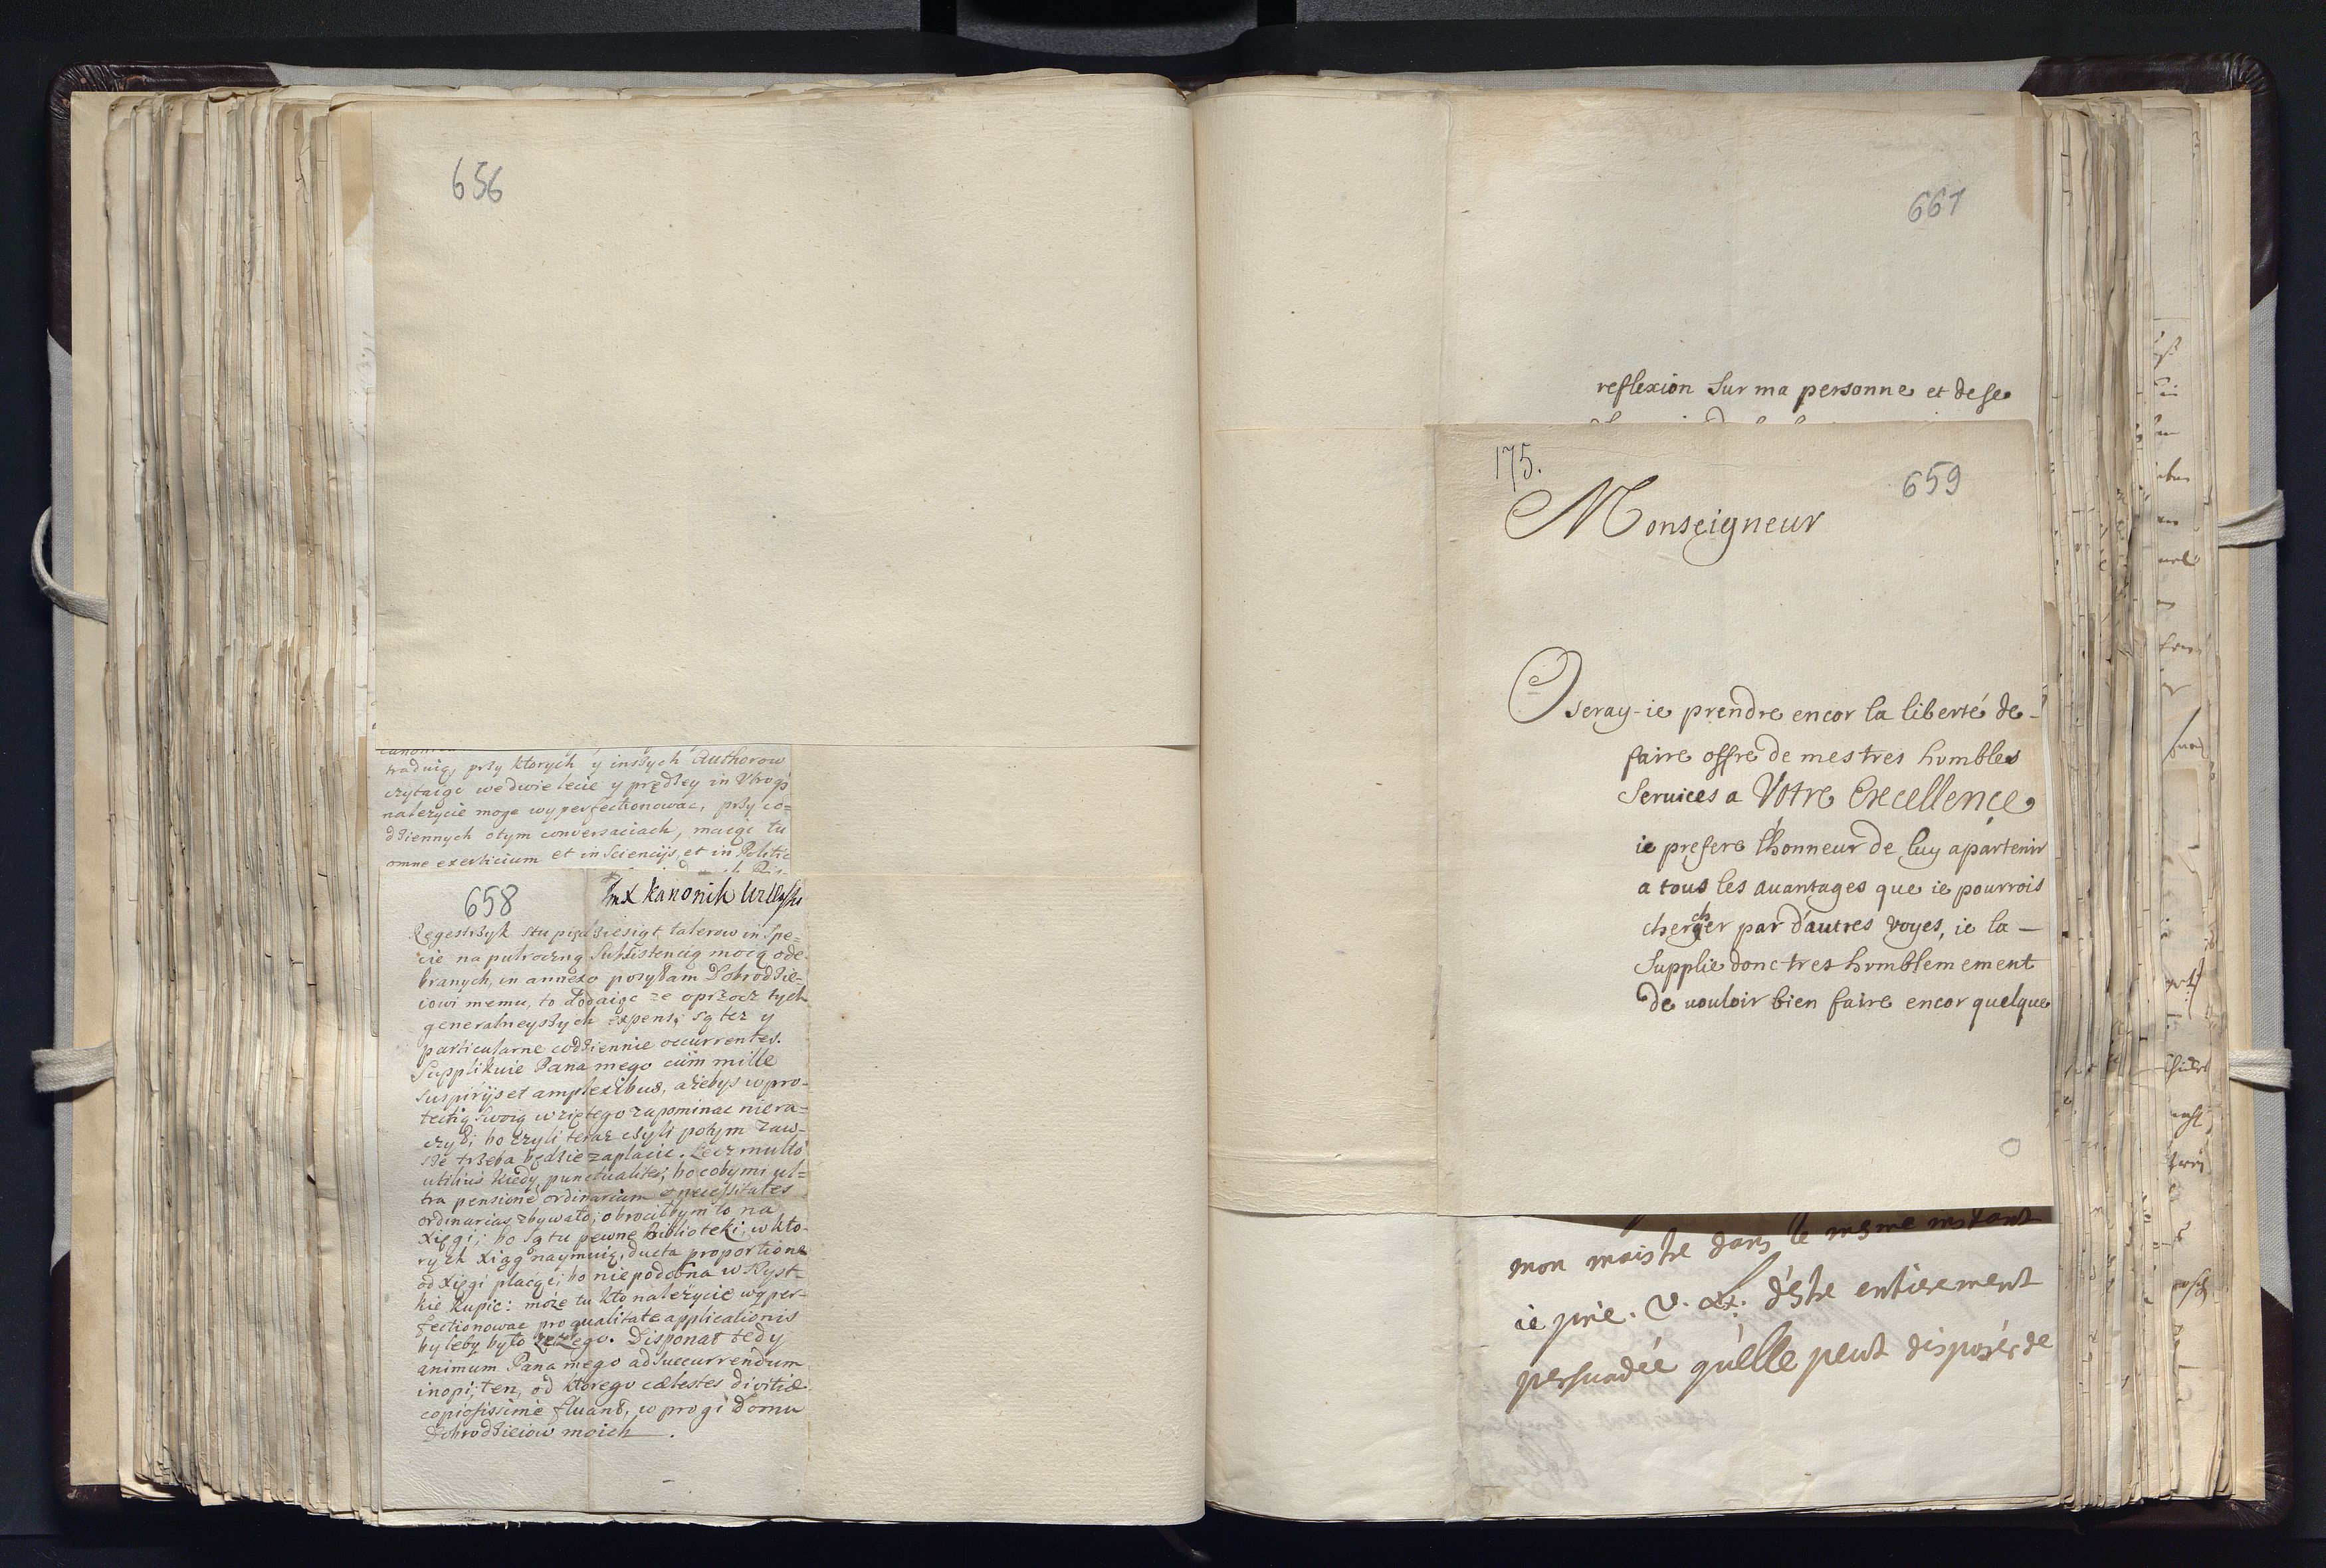 656
traduią, przy ktorych y inszych Authorow
czytaigc we dwie lecie y prędzey in Vtroq3
nalezycie moge wyperfectionowac, przy co=
dziennych otym conversaciach, maigc tu
omne exercicium et in Scienciys, et in Politic
658
Jmx Kanonik
Regestrzyk stu pięciudziesigt talerow in Spe=
cie na putroczną Subsistencią moią ode
branych, in annexo posyłam Dobrodzie=
iowi memu, to dodaigc ze oprzocz tych
generalneyszych expens, są tez y
particularne codziennie occurrentes.
Supplikuie Pana mego cum mille
suspirijs et amplexibus, azebys w pro=
tectią swoią wziętego zapominac niera=
czył; bo czyli teraz czyli potym zaw=
sze trzeba będzie zaplacic. Lecz multo
utilius kiedy punctualite; bo coby mi ul=
tra pensione ordinarium et necessitates
ordinarias zbywało, obrocilbym to na
xięgi; bo są tu pewne Biblioteki, w kto=
rych xiąg naymuią, ducta proportione
od xięgi placąc; bo niepodobna wszyst=
kie kupic: może tu kto nalezycie wyper=
fectionowac pro qualitate applicationis
byleby było z czego. Disponat tedy
animum Pana mego ad succurrendum
inopi, ten, od ktorego cælestes divitiæ
copiosissime fluant, w progi Domu
Dobrodzieiow moich.
661
reflexion Sur ma personne et de se
175.
659
Monseigneur
Oseray-ie prendre encor la liberté de-
faire offre de mes tres humbles
Services a Votre Excellence,
ie prefere l'honneur de luy apartenir
a tous les auantages que ie pourrois
chercher par d'autres voyes, ie la —
Supplie donc tres humblemement
de uouloir bien faire encor quelque
mon maistre dans le mesme instant
ie prie. V. Ex. d'estre entierement
persuadée qu'elle peut disposér de